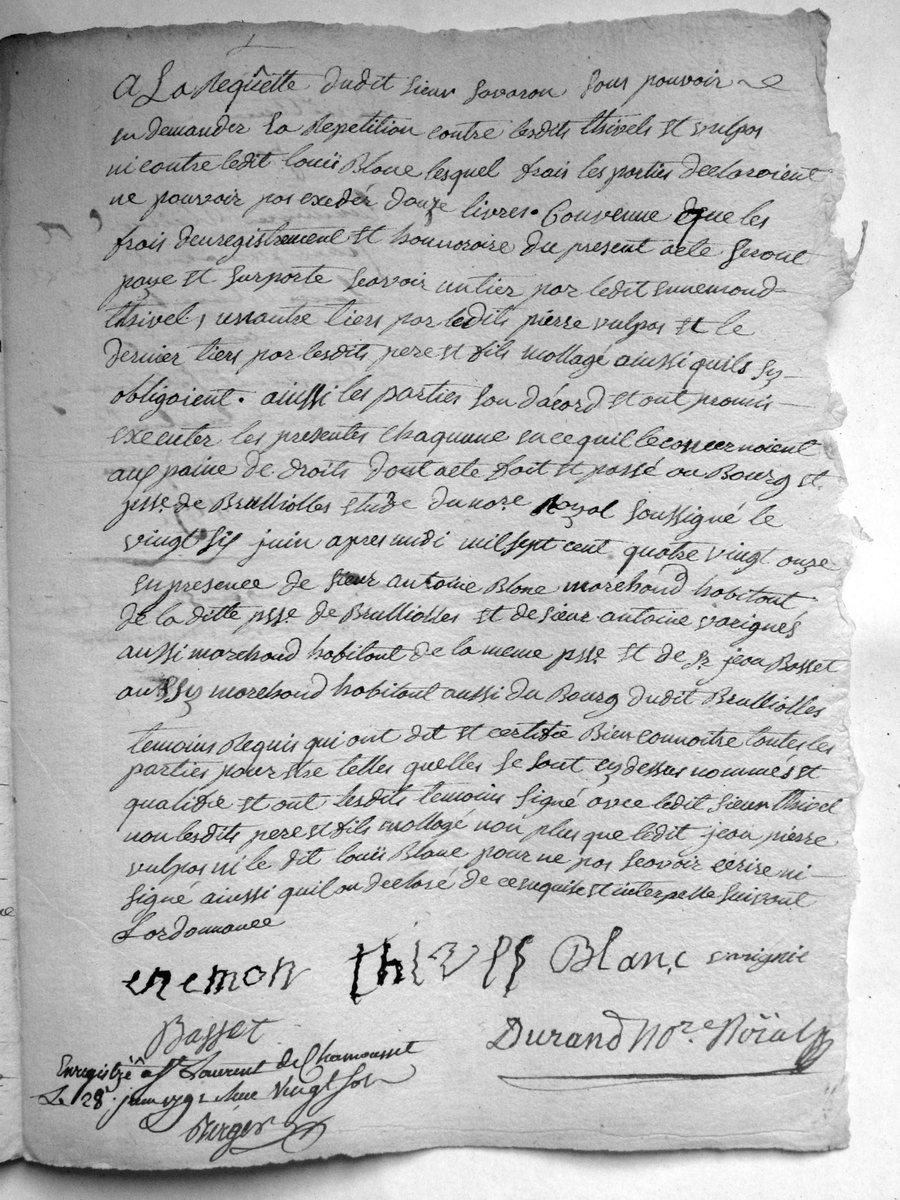 a La Requette dudit sieur savaron sans pouvoir
en demander la Repetition contre lesdits thivels et vulpas
ni contre ledit louis Blanc lesquel frais les parties declaroient
ne pouvoir pas exedér douze livres. Convenue que les
frais denregistrement et honnoraire du present acte seront
paye et surporte scavoir un tier par ledit ennemond
thivel, un autre tiers par ledits pierre vulpas et le
dernier tiers par lesdits pere et fils mollagé ainssi quils sy
obligoient. ainssi les parties son dácord et ont promis
executer les presentes chaqunne en ce quil le concernoient
aux paine de droits dont acte fait et passé au Bourg et
psse. de Brulliolles etude du nore. Royal soussigné le
vingt six juin apres midi mil sept cent quatre vingt onze
en presence de sieur antoine Blanc marchand habitant
de la ditte psse. de Brulliolles et de sieur antoine varignés
aussi marchand habitant de la meme psse. et de Sr. jean Basset
aussy marchand habitant aussi du Bourg dudit Brulliolles
temoins Requis qui ont dit et certifié Bien connoitre toutes les
parties pour etre telles quelles se sont cy dessus nommés et
qualifié et ont lesdits temoins signé avec ledit sieur thivel
non lesdits pere et fils mollagé non plus que ledit jean pierre
vulpas ni le dit louis Blanc pour ne pas scavoir écrire ni
signé ainssi quil on declaré de ce enquis et interpellé suivant
Lordonnance
enemon Blanc
Basset
Durand Nore Röïal
Enregistré a St Laurent de Chamousset
Le 28e. juin 1791 Recu Vingt sols